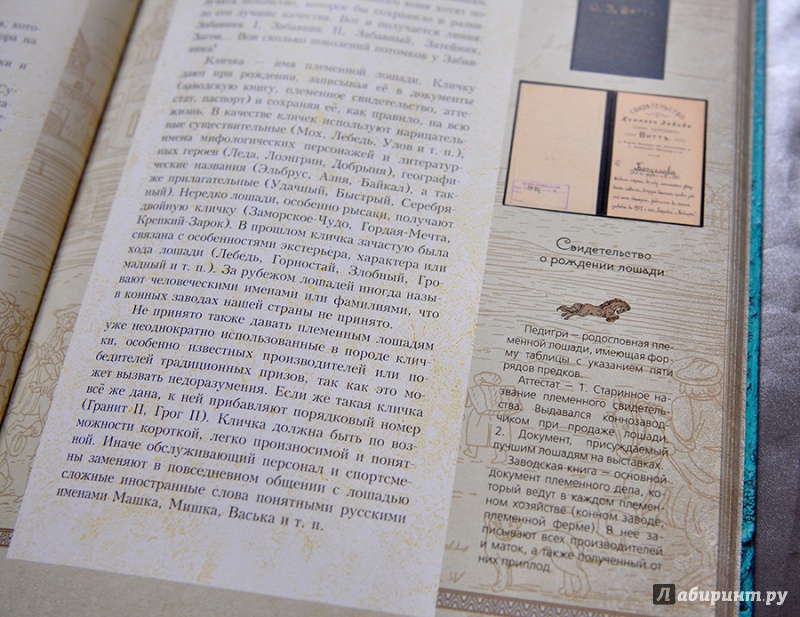 ло его лучшие качества. Вот и получается линия:
Забавник I, Забавник II, Забавный, Затейник,
Загон... Вон сколько поколений потомков у Забав-
ника!
Кличка – имя племенной лошади. Кличку
дают при рождении, записывая её в документы
(заводскую книгу, племенное свидетельство, атте-
стат, паспорт) и сохраняя её, как правило, на всю
жизнь. В качестве кличек используют нарицатель-
ные существительные (Мох, Лебедь, Улов и т. п.),
имена мифологических персонажей и литератур-
ных героев (Леда, Лоэнгрин, Добрыня), географи-
ческие названия (Эльбрус, Азия, Байкал), а так-
же прилагательные (Удачный, Быстрый, Серебря-
ный). Нередко лошади, особенно рысаки, получают
двойную кличку (Заморское-Чудо, Гордая-Мечта,
Крепкий-Зарок). В прошлом кличка зачастую была
связана с особенностями экстерьера, характера или
хода лошади (Лебедь, Горностай, Злобный, Гро-
мадный и т. п.). За рубежом лошадей иногда назы-
вают человеческими именами или фамилиями, что
в конных заводах нашей страны не принято.
Не принято также давать племенным лошадям
уже неоднократно использованные в породе клич-
ки, особенно известных производителей или по-
бедителей традиционных призов, так как это мо-
жет вызвать недоразумения. Если же такая кличка
всё же дана, к ней прибавляют порядковый номер
(Гранит II, Грог II). Кличка должна быть по воз-
можности короткой, легко произносимой и понят-
ной. Иначе обслуживающий персонал и спортсме-
ны заменяют в повседневном общении с лошадью
сложные иностранные слова понятными русскими
именами Машка, Мишка, Васька и т. п.
СВИДѢТЕЛЬСТВО
Коннаго Завода
ВИТТЪ
Свидетельство
о рождении лошади
Педигри – родословная пле-
менной лошади, имеющая фор-
му таблицы с указанием пяти
рядов предков.
Аттестат – 1. Старинное на-
звание племенного свидетель-
ства. Выдавался коннозавод-
чиком при продаже лошади.
2. Документ, присуждаемый
лучшим лошадям на выставках.
Заводская книга – основной
документ племенного дела, ко-
торый ведут в каждом племен-
ном хозяйстве (конном заводе,
племенной ферме). В неё за-
писывают всех производителей
и маток, а также полученный от
них приплод.
Лабиринт.ру